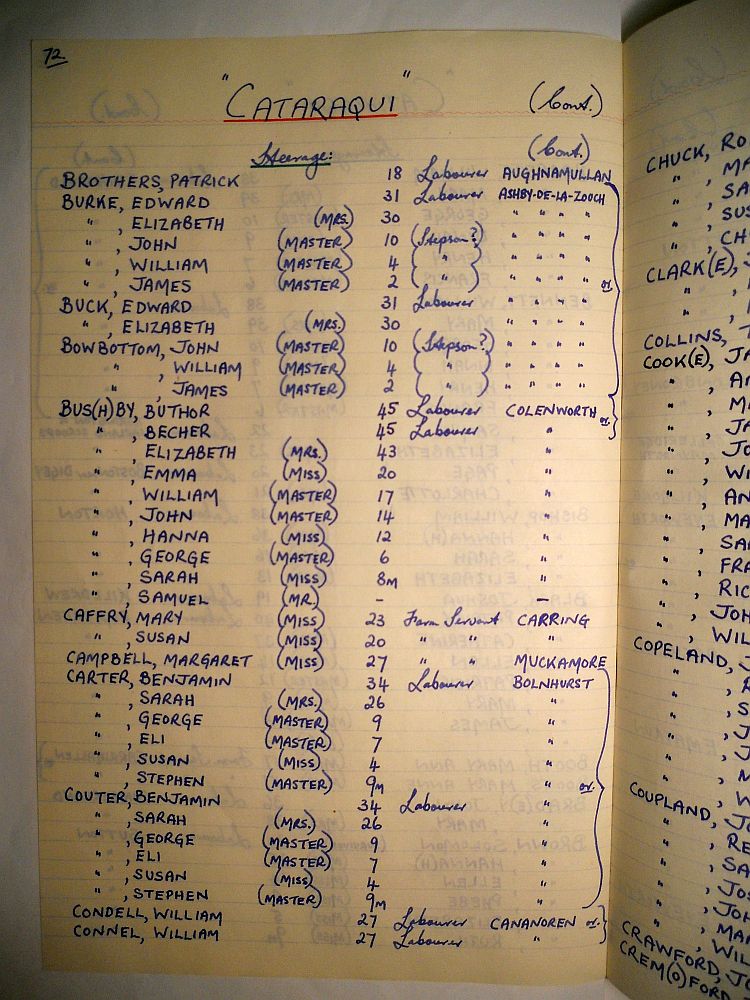 72
"CATARAQUI" (Cont.)
Steerage: (Cont.)
BROTHERS, PATRICK 18 Labourer AUGHNAMULLAN
BURKE, EDWARD 31 Labourer ASHBY-DE-LA-ZOOCH
" , ELIZABETH (MRS.) 30 " " " "
" , JOHN (MASTER) 10 (Stepson?) " " " "
" , WILLIAM (MASTER) 4 ( " ) " " " "
" , JAMES (MASTER) 2 ( " ) " " " " or.
BUCK, EDWARD 31 Labourer " " " "
" , ELIZABETH (MRS.) 30 " " " "
BOWBOTTOM, JOHN (MASTER) 10 (Stepson?) " " " "
" , WILLIAM (MASTER) 4 ( " ) " " " "
" , JAMES (MASTER) 2 ( " ) " " " "
BUS(H)BY, BUTHOR 45 Labourer COLENWORTH or.
" , BECHER 45 Labourer "
" , ELIZABETH (MRS.) 43 "
" , EMMA (MISS) 20 "
" , WILLIAM (MASTER) 17 "
" , JOHN (MASTER) 14 "
" , HANNA (MISS) 12 "
" , GEORGE (MASTER) 6 "
" , SARAH (MISS) 8m "
" , SAMUEL (MR.) - -
CAFFRY, MARY (MISS) 23 Farm Servant CARRING
" , SUSAN (MISS) 20 " " "
CAMPBELL, MARGARET (MISS) 27 " " MUCKAMORE
CARTER, BENJAMIN 34 Labourer BOLNHURST
" , SARAH (MRS.) 26 "
" , GEORGE (MASTER) 9 "
" , ELI (MASTER) 7 "
" , SUSAN (MISS) 4 "
" , STEPHEN (MASTER) 9m " or.
COUTER, BENJAMIN 34 Labourer "
" , SARAH (MRS.) 26 "
" , GEORGE (MASTER) 9 "
" , ELI (MASTER) 7 "
" , SUSAN (MISS) 4 "
" , STEPHEN (MASTER) 9m "
CONDELL, WILLIAM 27 Labourer CANANOREN or.
CONNEL, WILLIAM 27 Labourer "
CHUCK, RO
" , MA
" , SA
" , SUS
" , CH
CLARK(E), J
" ,
" ,
COLLINS, T
COOK(E), JA
" , AN
" , M
" , JA
" , JO
" , WI
" , AN
" , MA
" , SAR
" , FRA
" , RIC
" , JOH
" , WIL
COPELAND, J
" , A
" , S
" , J
" , J
" , M
" , W
COUPLAND, JO
" , RE
" , SA
" , JOS
" , JOH
" , MAR
" , WIL
CRAWFORD, JO
CREM(O)FORD